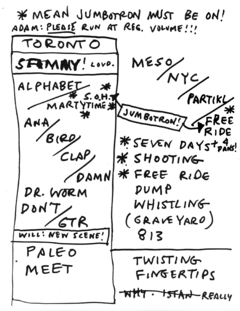 * MEAN JUMBOTRON MUST BE ON!
ADAM: PLEASE RUN AT REG. VOLUME!!!
TORONTO
SPAMMY! LOUD.
ALPHABET
* S.O.H.
MARTYTIME *
ANA
BIRD
CLAP
DAMN
DR. WORM
DON'T
GTR
WILL: NEW SCENE!
PALEO
MEET
MESO/
NYC/
PARTIKL
JUMBOTRON!
* FREE
RIDE
* SEVEN DAYS
* SHOOTING
* FREE RIDE
DUMP
WHISTLING
(GRAVEYARD)
813
TWISTING
FINGERTIPS
WHY. ISTAN REALLY